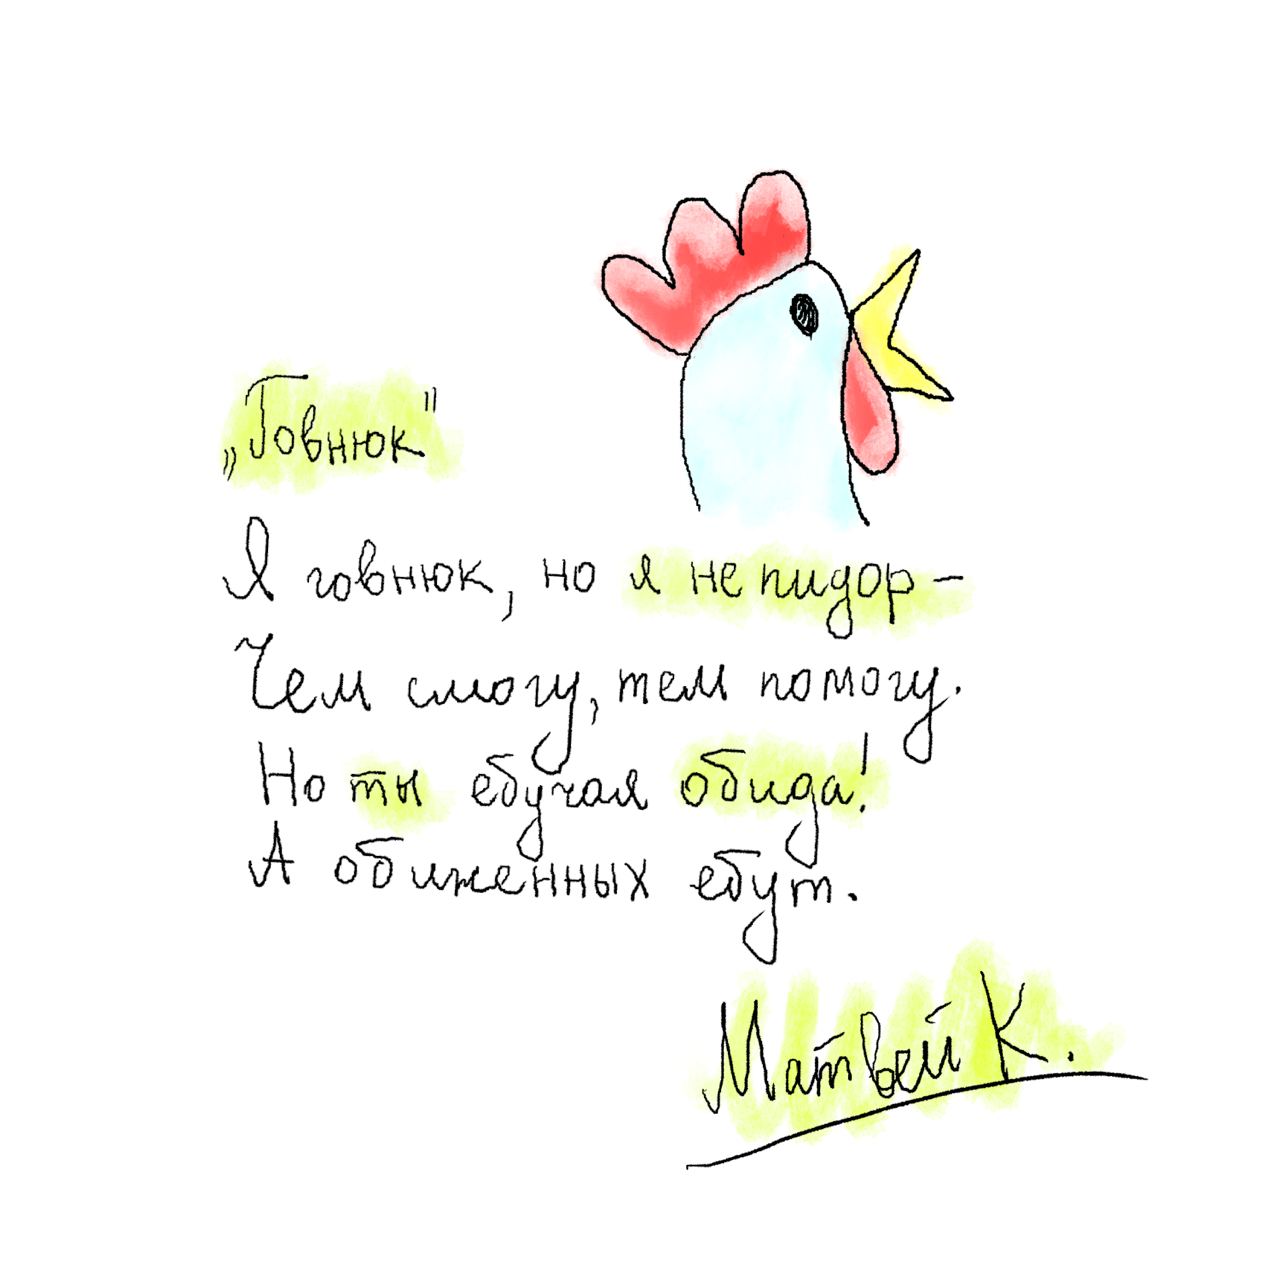 „Говнюк"
Я говнюк, но я не пидор –
Чем смогу, тем помогу.
Но ты ебучая обида!
А обиженных ебут.
Матвей К.